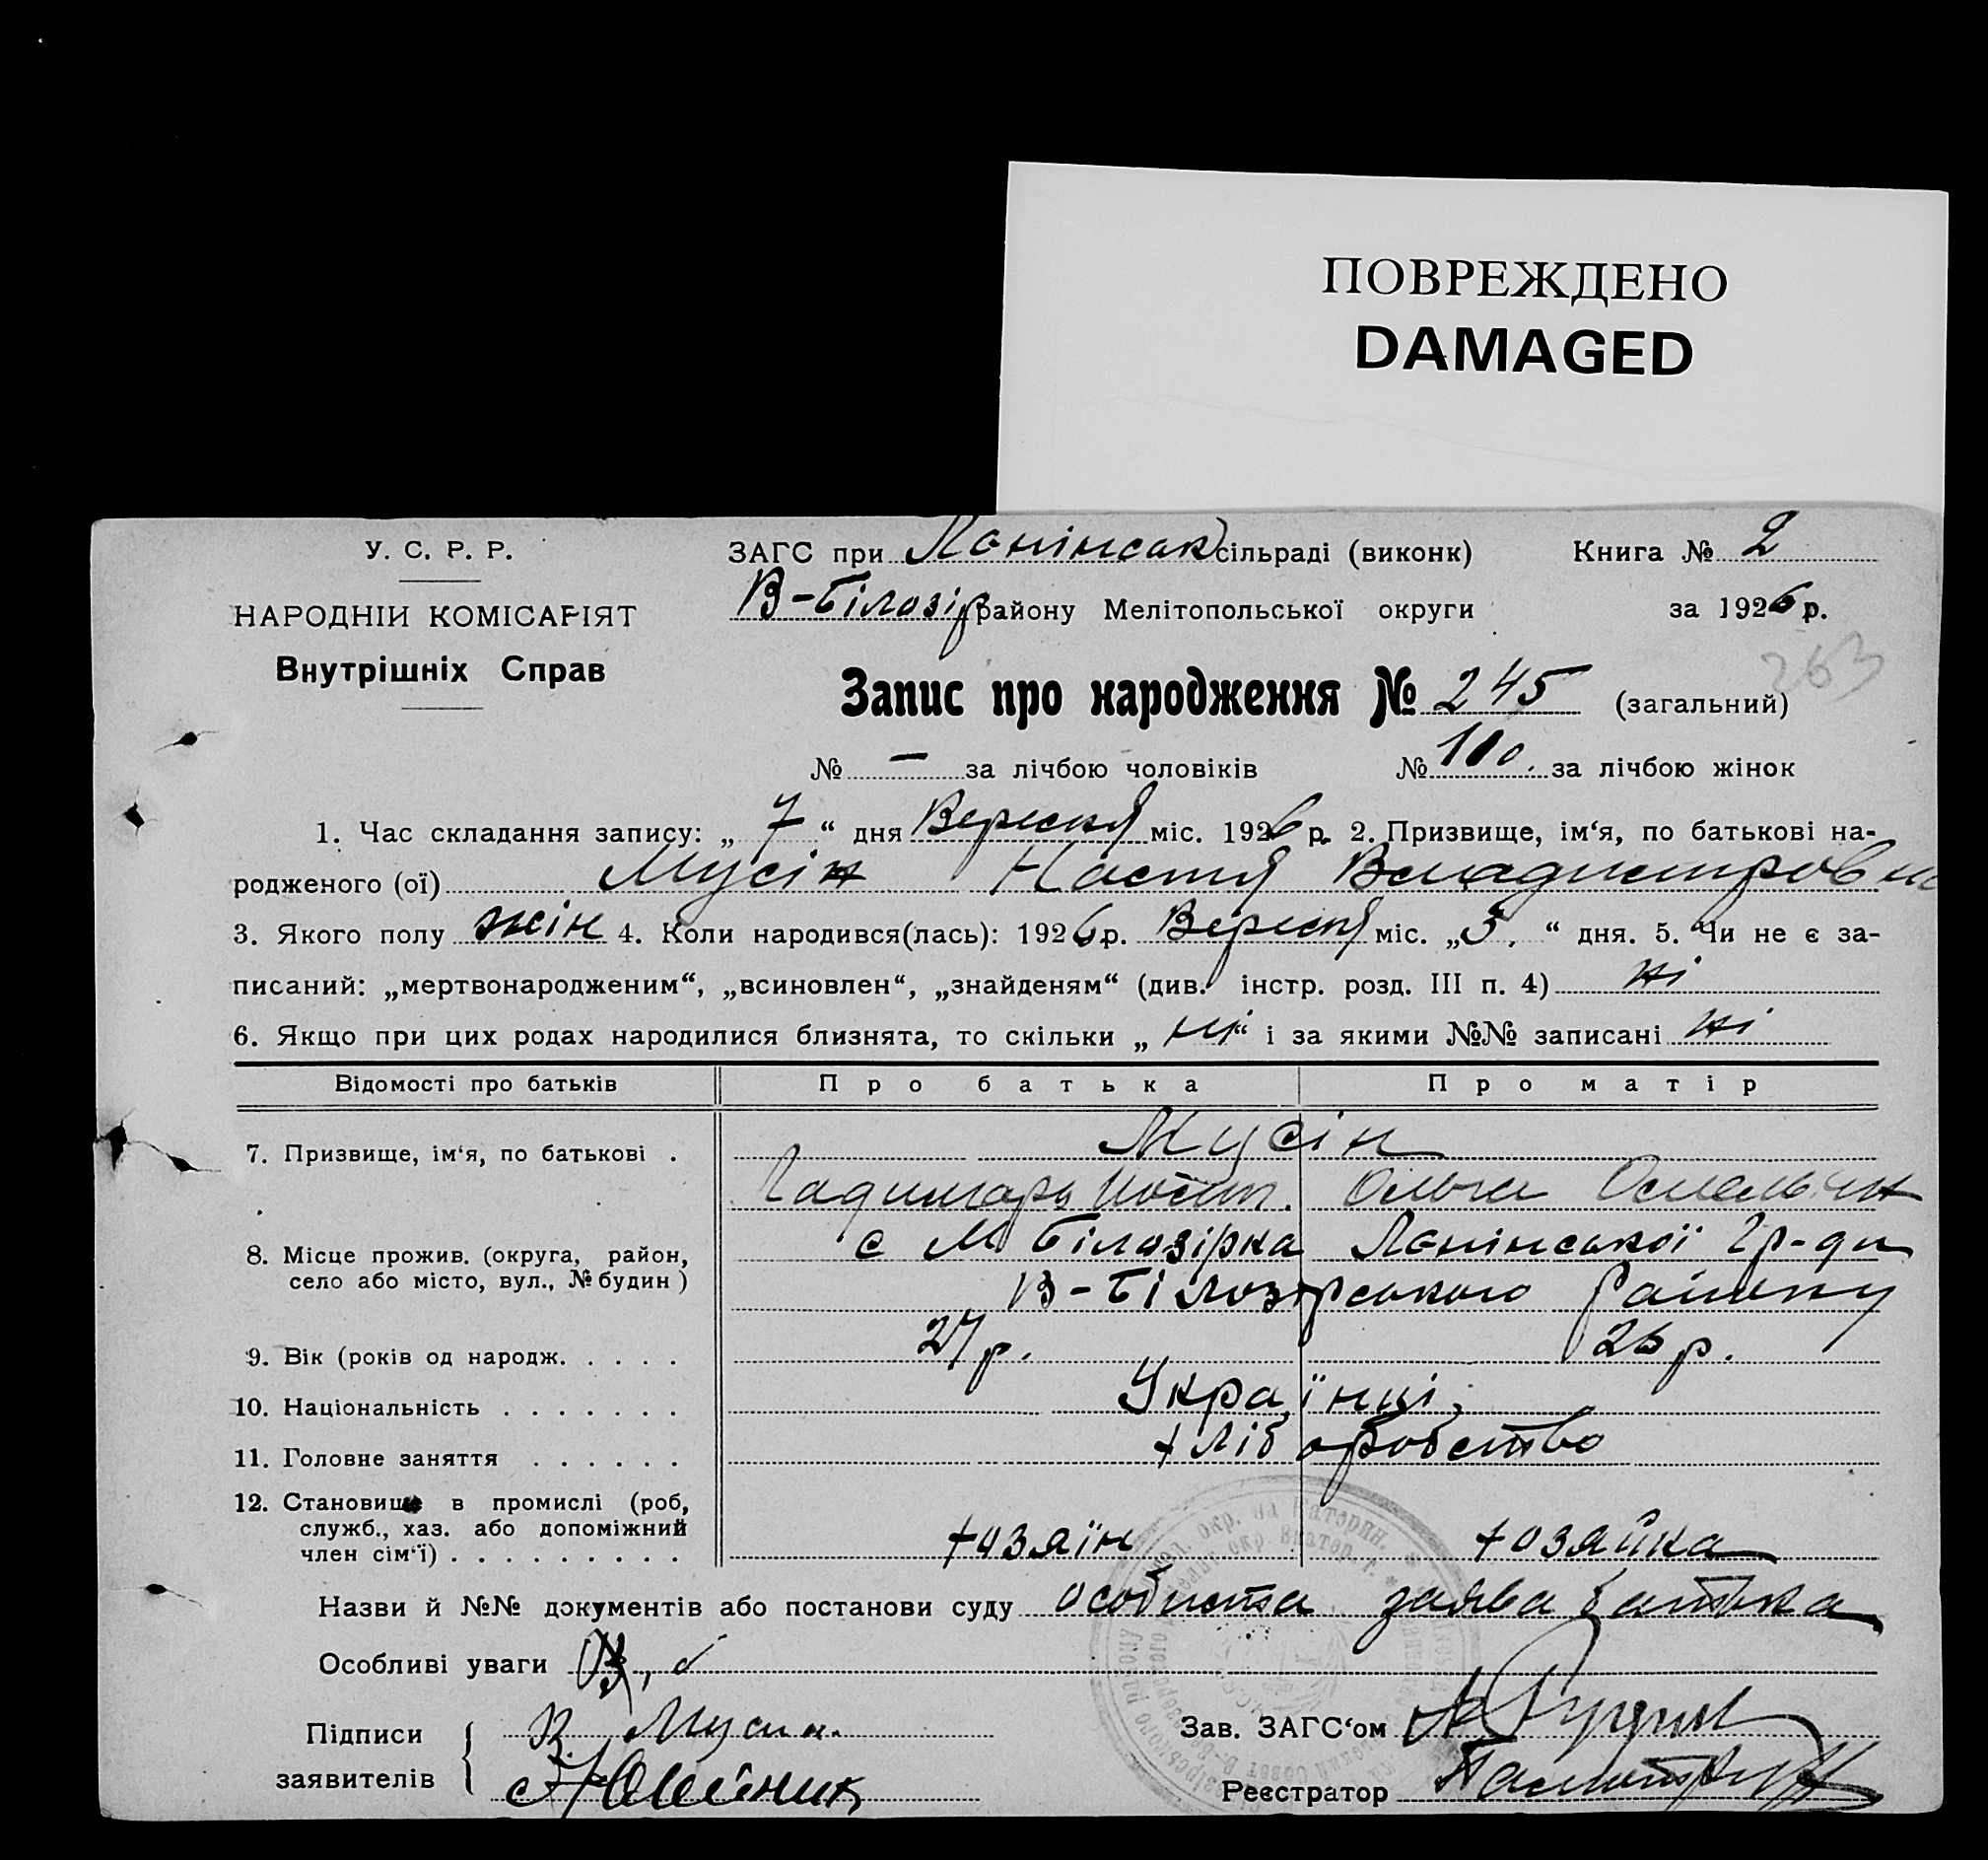 ПОВРЕЖДЕНО
DAMAGED
У. С. Р. Р.
ЗАГС при Ленінськ сільраді (виконк) Книга № 2
В-Білозір району Мелітопольської округи за 1926 р.
НАРОДНІЙ КОМІСАРІЯТ
Внутрішніх Справ
263
Запис про народження № 245 (загальний)
№ — за лічбою чоловіків № 110. за лічбою жінок
1. Час складання запису: „ 7 “ дня Вересня міс. 1926 р. 2. Призвище, ім‘я, по батькові на-
родженого (ої) Мусін Настя
3. Якого полу жін 4. Коли народився(лась): 1926 р. Вересня міс. „ 5. “ дня. 5. Чи не є за-
писаний: „мертвонародженим“, „всиновлен“, „знайденям“ (див. інстр. розд. III п. 4) ні
6. Якщо при цих родах народилися близнята, то скільки „ ні “ і за якими №№ записані ні
Відомості про батьків Про батька Про матір
7. Призвище, ім‘я, по батькові . Мусін
Ольга
8. Місце прожив. (округа, район, село або місто, вул., № будин ) с М Білозірка Ленінської
В-Білозірського Району
9. Вік (років од народж. . . . . 27 р. 26 р.
10. Національність . . . . . . . Українці
11. Головне заняття . . . . . . хліборобство
12. Становище в промислі (роб,
служб., хаз. або допоміжний
член сім‘ї) . . . . . . . . . хозяїн хозяйка
Назви й №№ документів або постанови суду особиста заява батька
Особливі уваги
Підписи В. Мусін. Зав. ЗАГС‘ом
заявителів Олейник Реєстратор